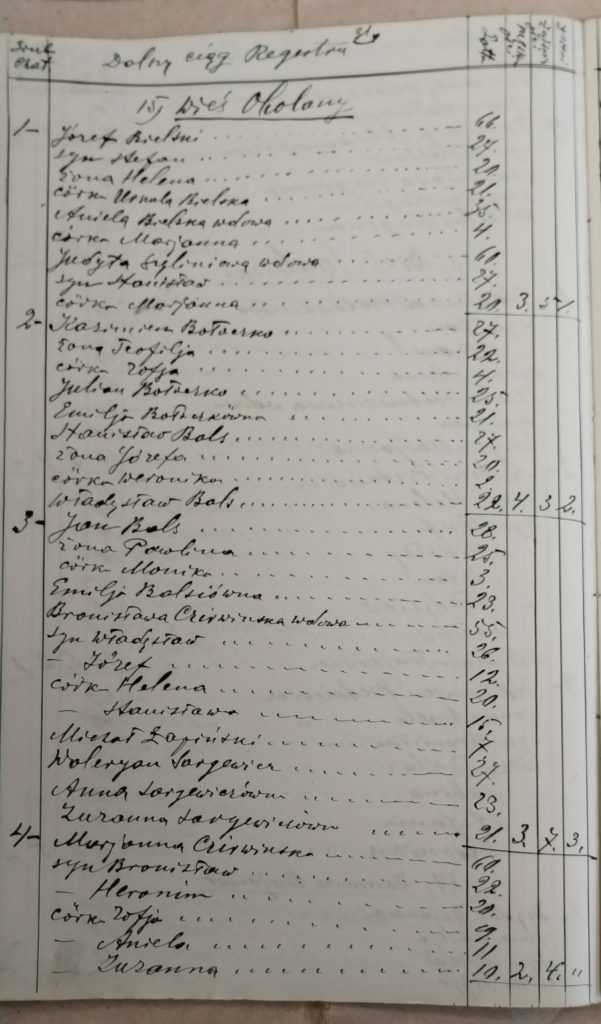 Dolny ciąg Regestru
15, wieś Okolany
1- Józef Bielski 66.
syn Stefan 27.
żona Helena 20.
córka Urszula Bielska 21.
Aniela Bielska wdowa 35.
córka Marjanna 4.
Judyta wdowa 60.
syn Stanisław 27.
córka Marjanna 20. 3. 5
2- Kazimierz Bołoczko 27.
żona Teofilja 22.
córka Zofja 4.
Julian Bołoczko 25
Emilja 21.
Stanisław Bals 27.
żona Józefa 20.
córka Weronika 2.
Władysław Bals 22. 4. 3 2.
3- Jan Bals 28.
żona Pawlina 25.
córk Monika 3.
Emilja Balsiówna 23.
Bronisława Czerwinska wdowa 55.
syn Władysław 26.
– Józef 12.
córk Helena 20.
– Stanisława 15.
Michał Łapiński 7.
Waleryan Sargewicz 27.
Anna Sargewiczówna 23.
Zuzanna Sargewiczówna 21. 3. 7. 3.
4- Marjanna Czerwinska 60.
syn Bronisław 22.
– Heronim 20.
córk Zofja 9.
– Aniela 11
– Zuzanna 10. 2. 4. "